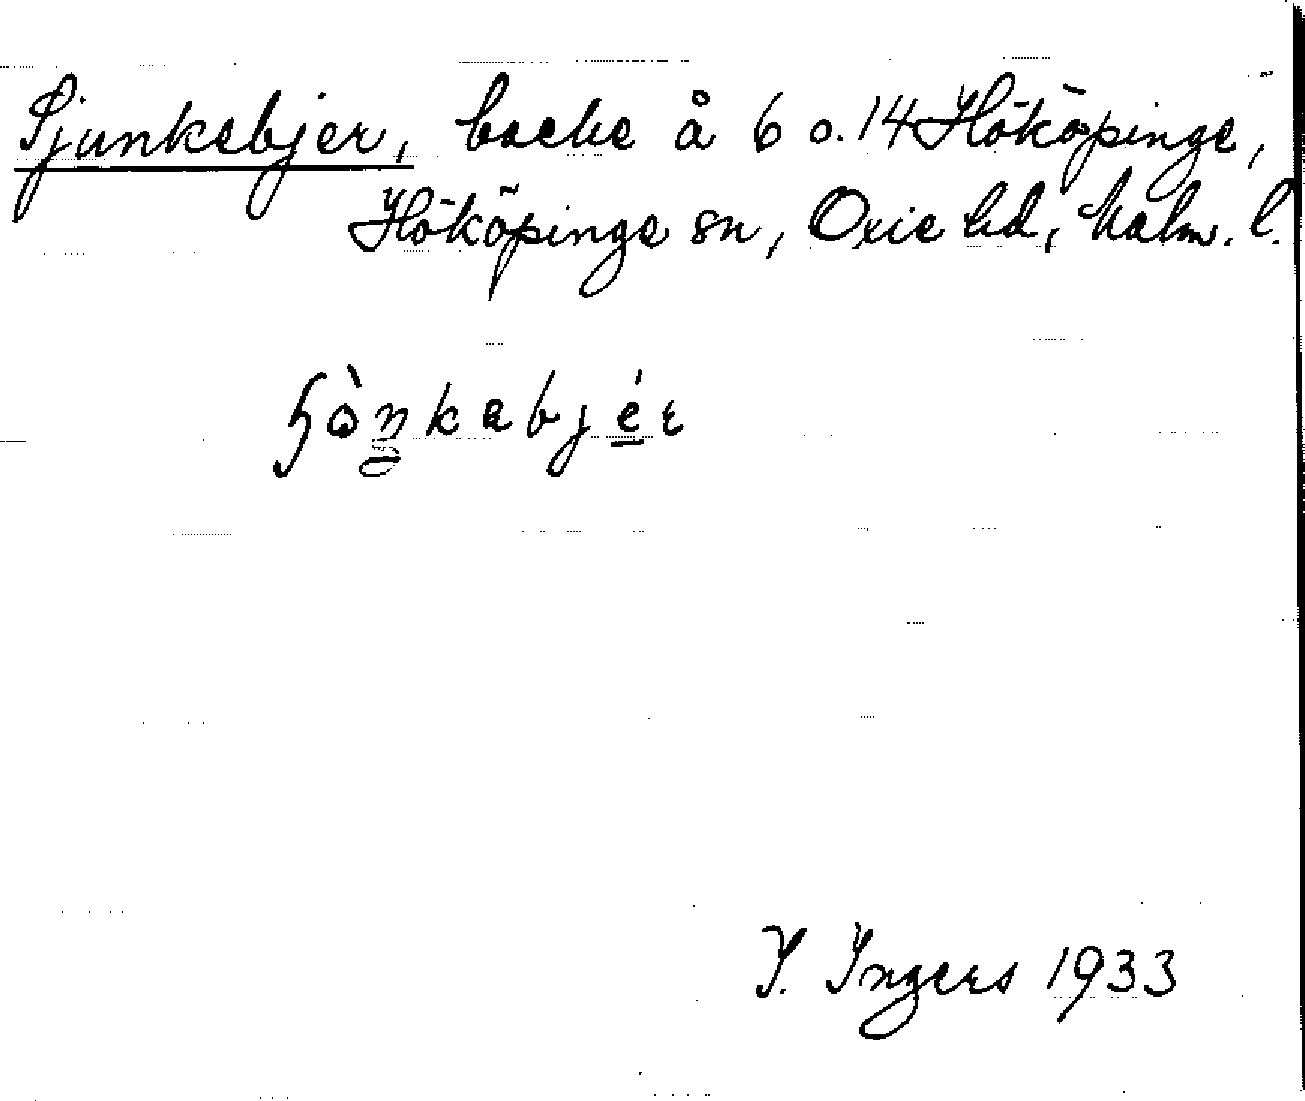 Sjunkebjer, backe å 6 o. 14 Hököpinge,
Hököpinge sn, Oxie hd, Malm. l.
I. Ingers 1933